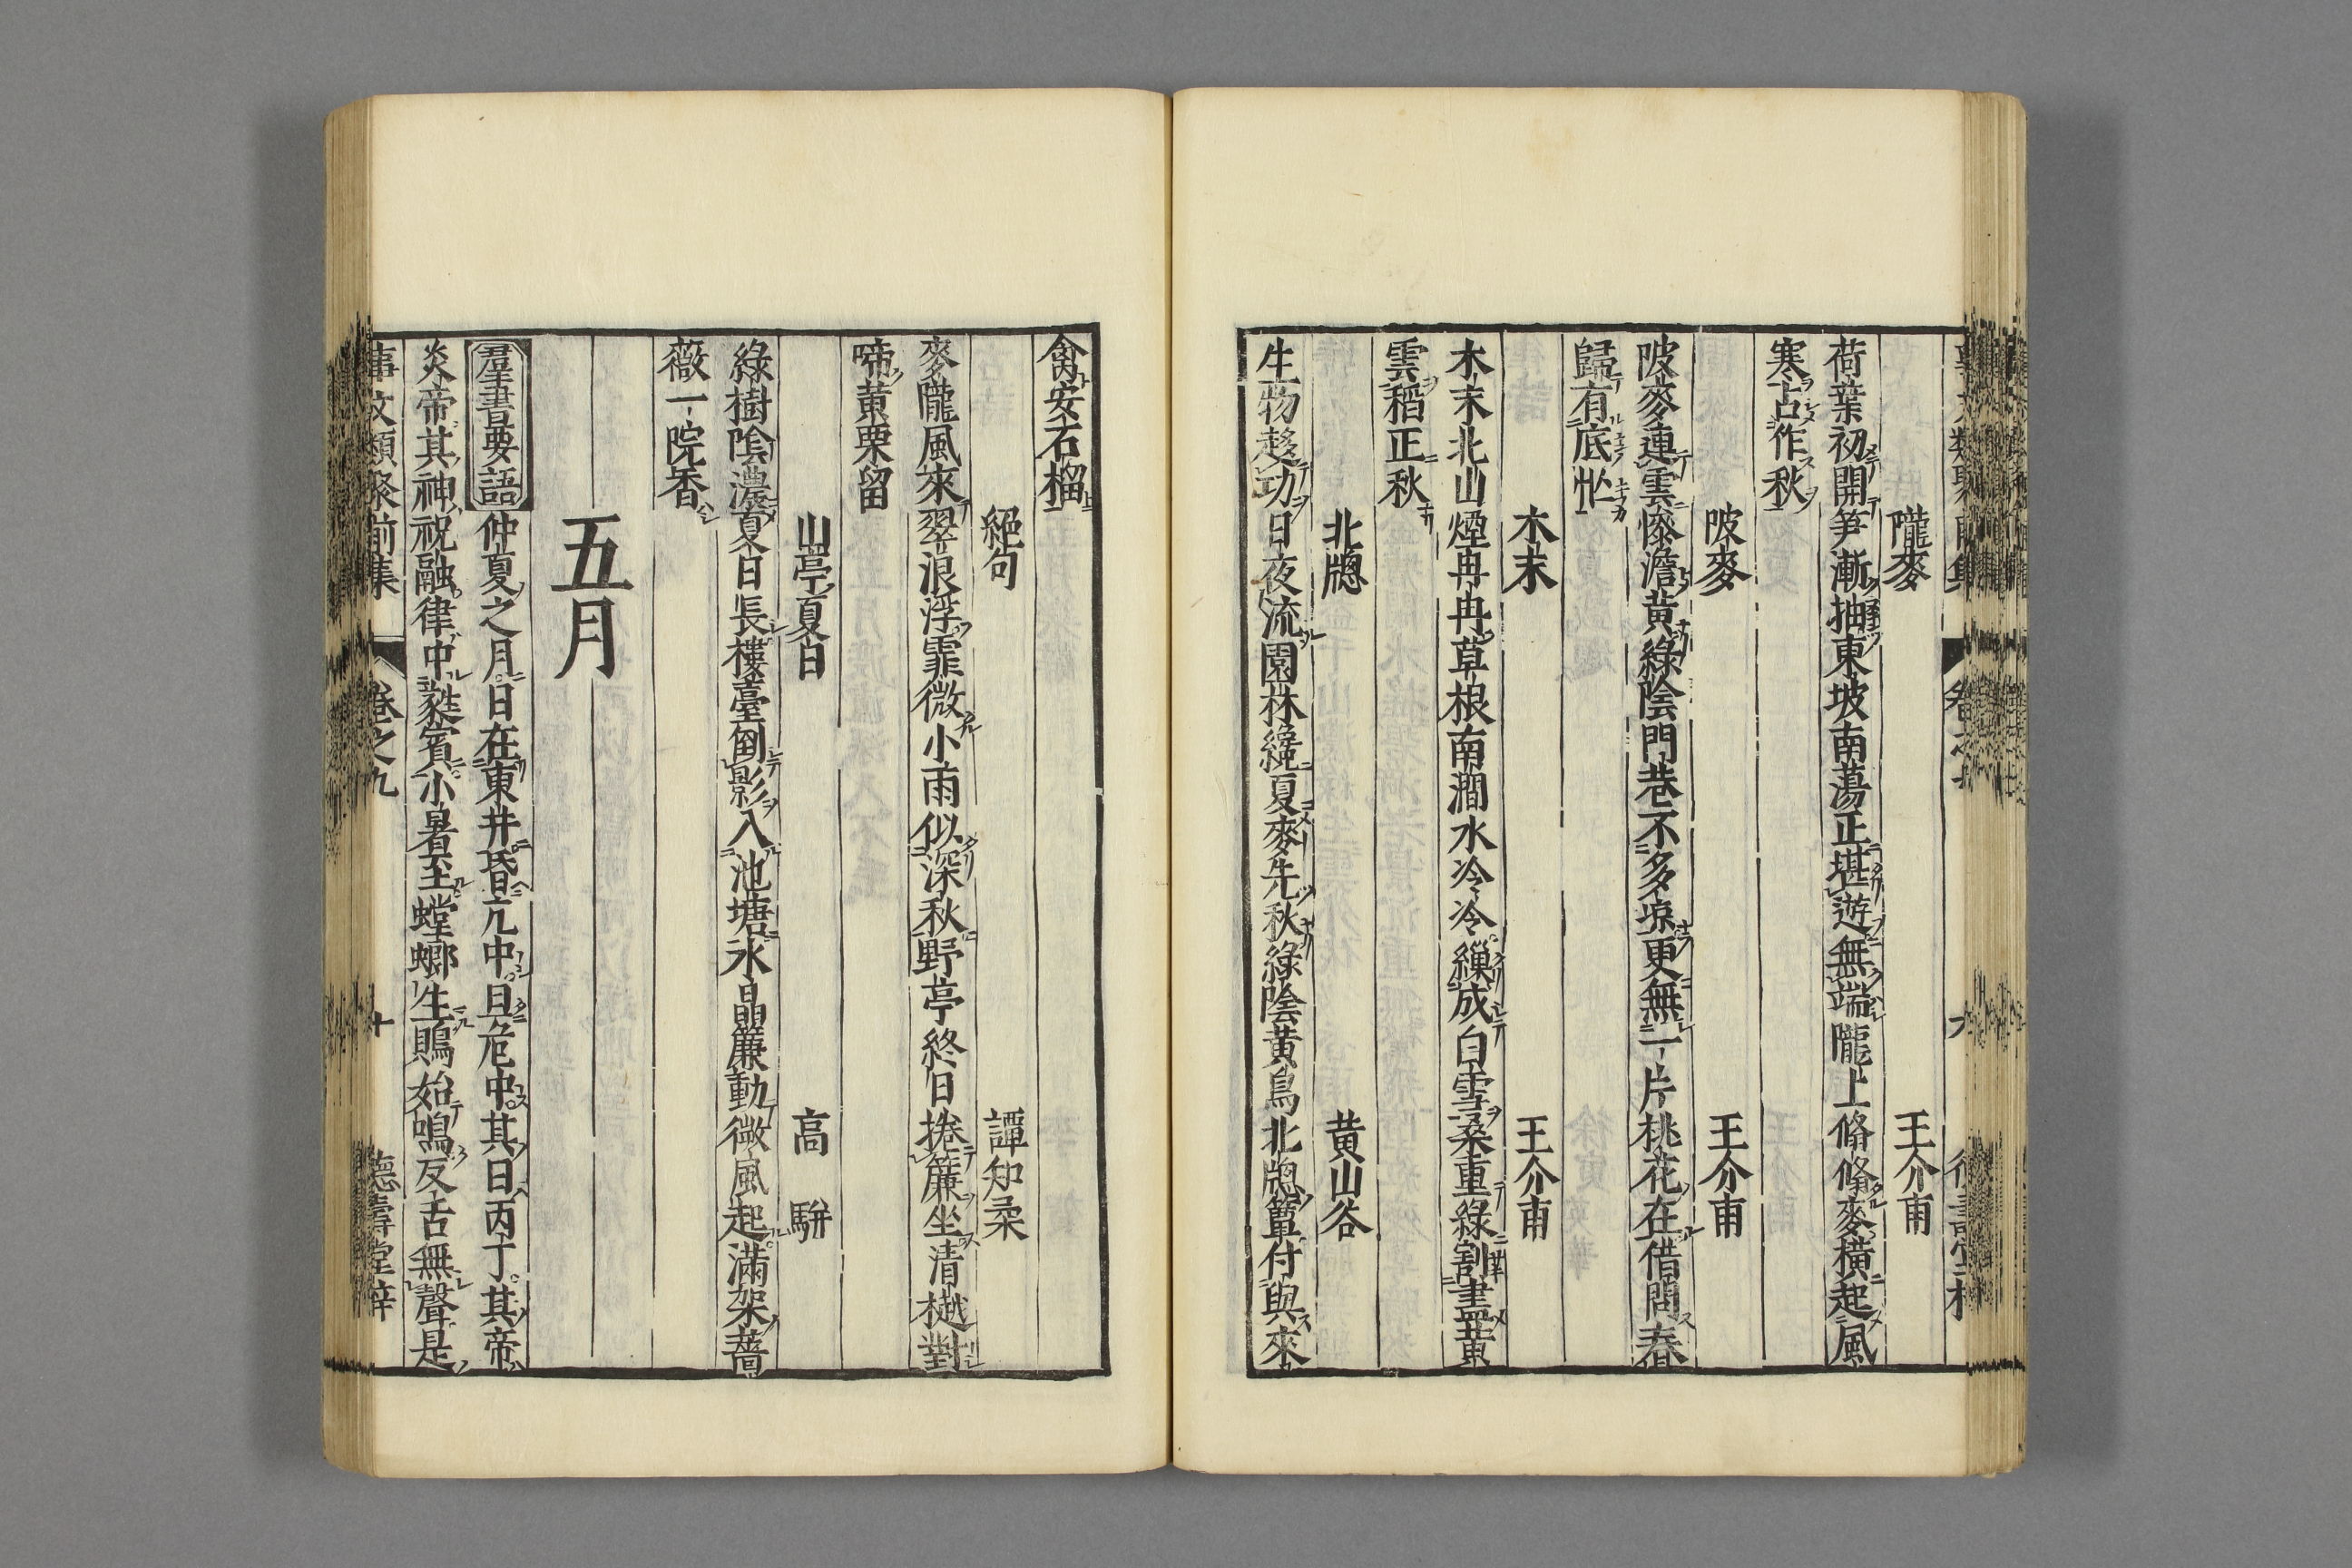 隴麥 王介甫
荷葉初開笋漸抽東坡南蕩正堪遊無端隴上翛翛麥橫起風
寒占作秋
陂麥 王介甫
陂麥連雲慘澹黃綠陰門巷不多涼更無一片桃花在借問春
歸有底忙
木末 王介甫
木末北山煙冉冉草根南澗水泠泠繅成白雪桑重綠割盡黃
雲稻正秋
北牕 黃山谷
生物趍功日夜流園林纔夏麥先秋綠陰黃鳥北牕簟付與來
禽安石榴
絕句 譚知柔
麥隴風來翠浪浮霏微小雨似深秋野亭終日捲簾坐清樾對
啼黃栗留
山亭夏日 高駢
綠樹陰濃夏日長樓臺倒影入池塘水晶簾動微風起滿架薔
薇一院香
五月
羣書要語 仲夏之月日在東井昏亢中旦危中其日丙丁其帝
炎帝其神祝融律中蕤賓小暑至螳螂生鵙始鳴反舌無聲是
事文類聚前集 卷之九 十 德壽堂梓